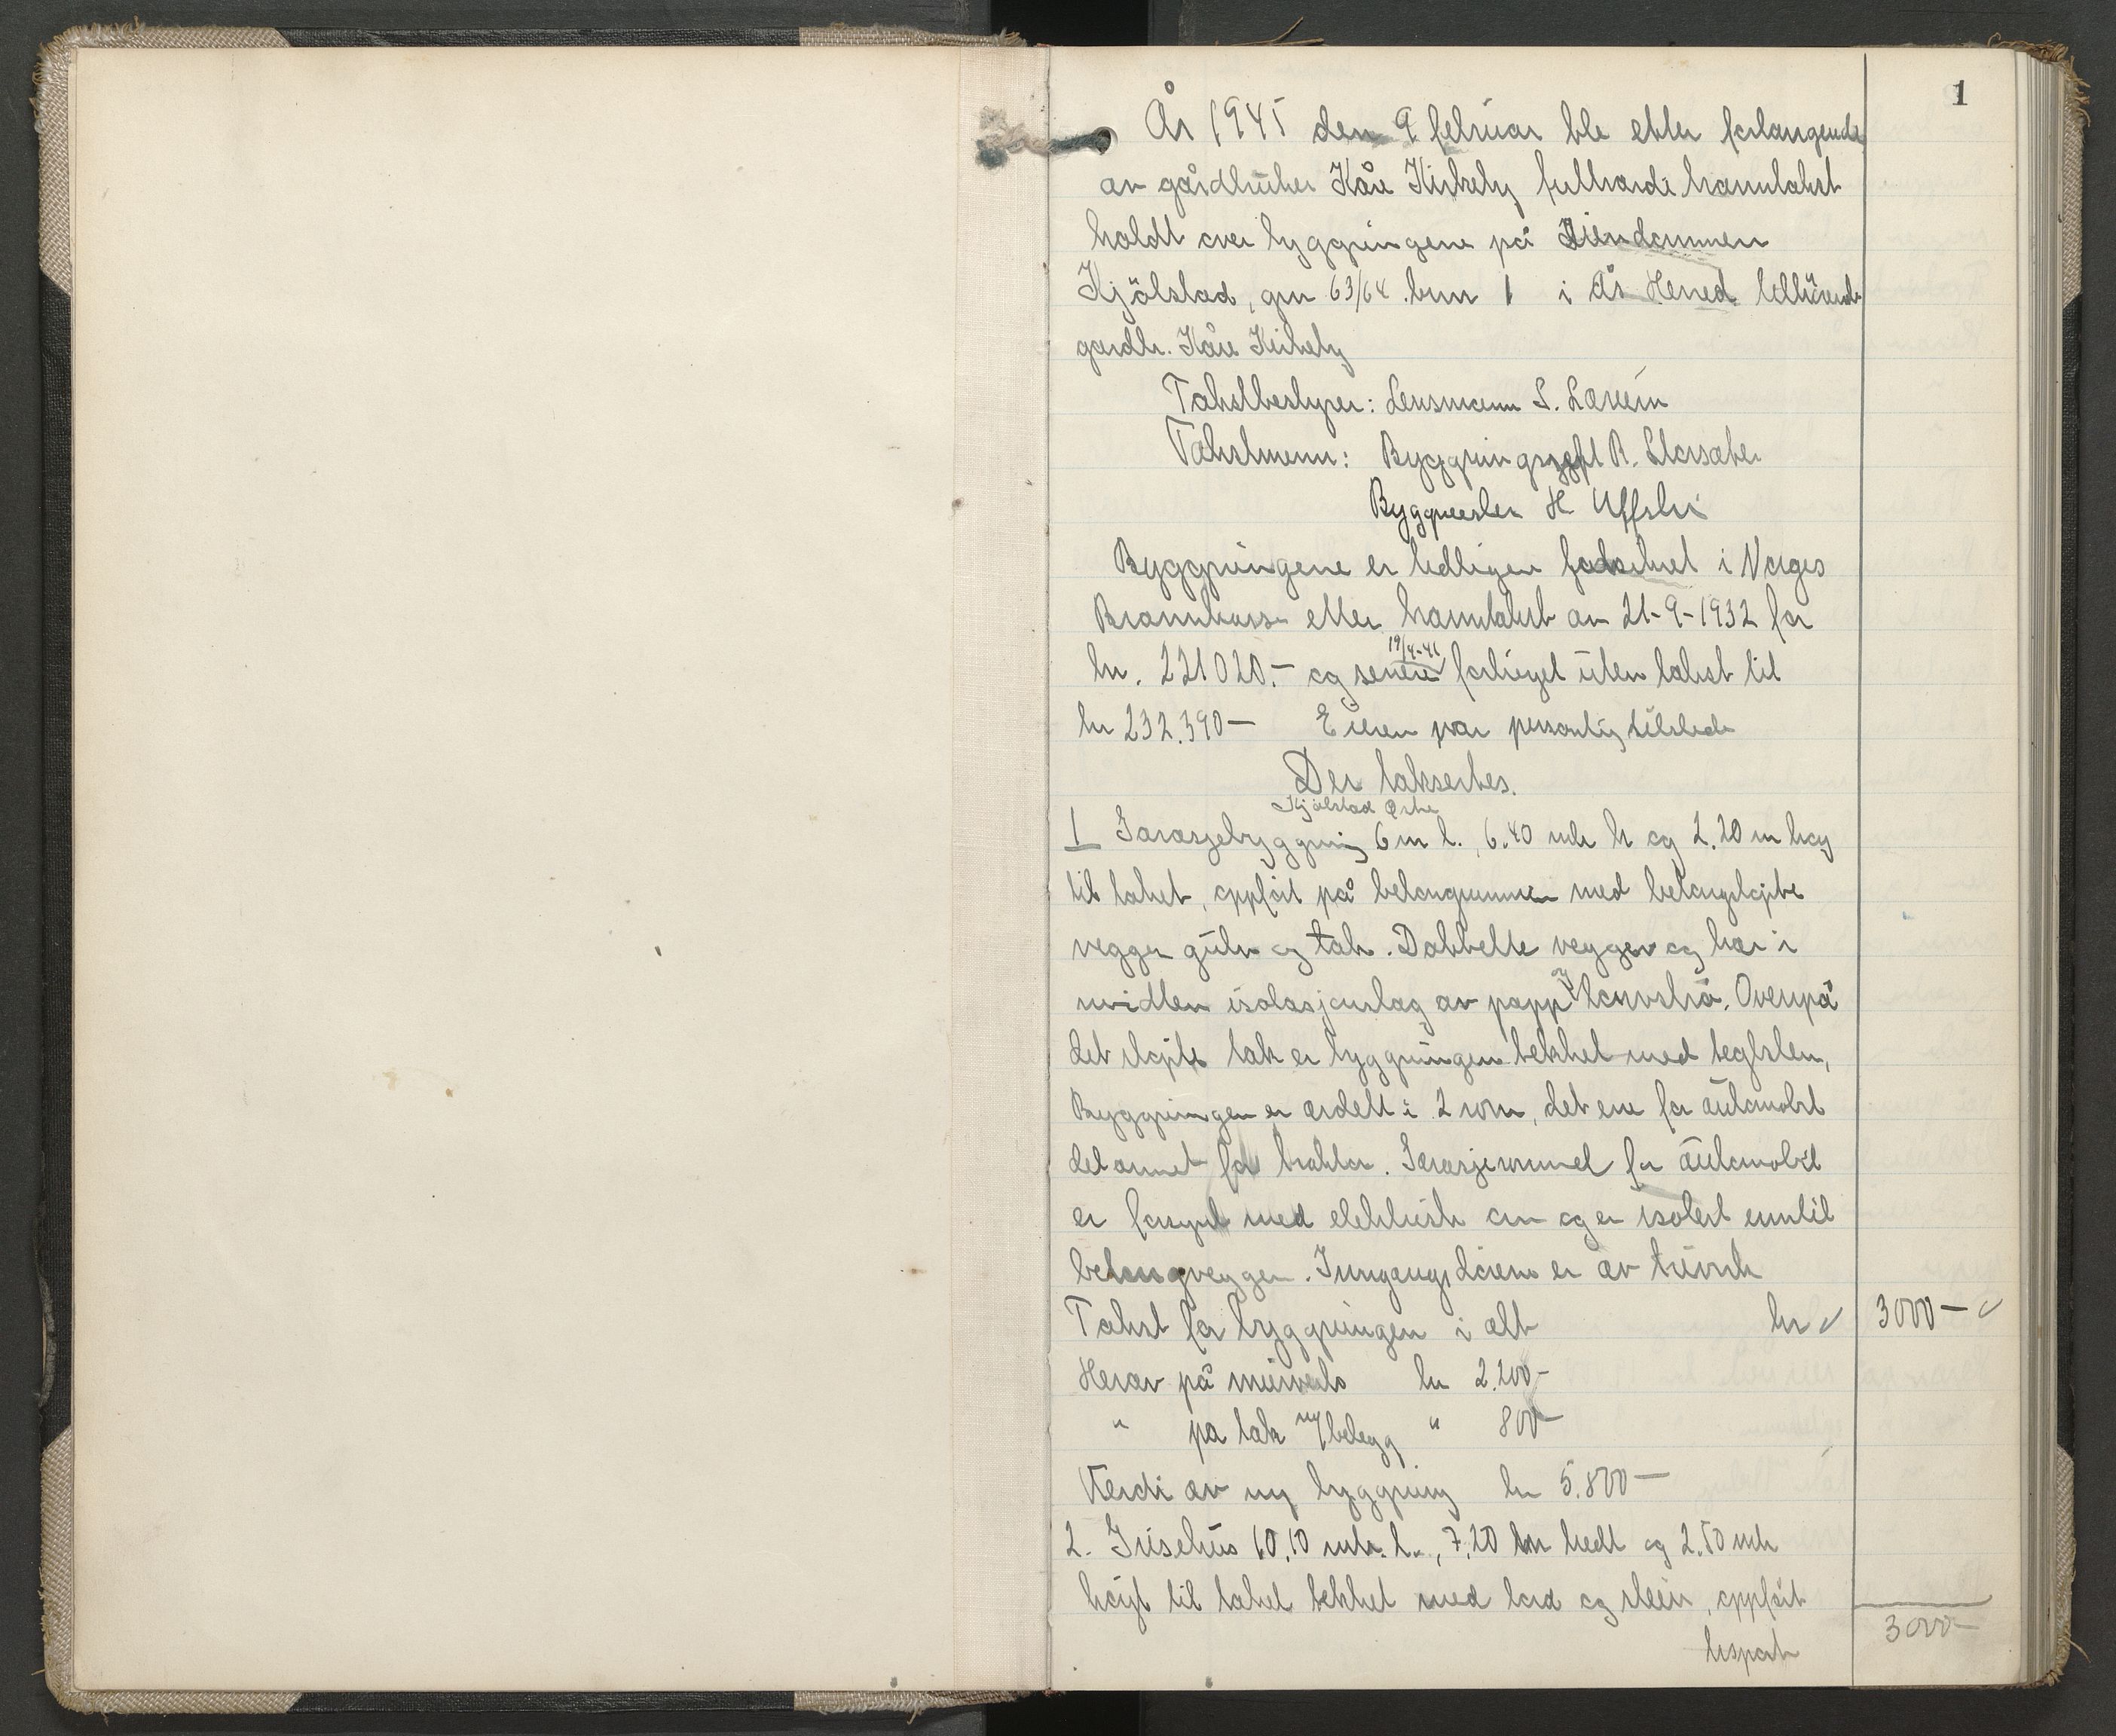 1
År 1945 den 9 februar ble etter forlangende
av gårdbruker Kåre Kirkeby fullverdi branntakst
holdt over bygningene på Eiendommen
Kjölstad, gnr 63/64 bnr 1 i Ås Herred tilhörende
gardbr. Kåre Kirkeby
Takstbestyrer: Lensmann S.
Takstmenn: R. Storsæter
Byggmester H
Byggningene er tidligere forsikret i Norges
Brannkasse etter branntakst av 21-9-1932 for
kr. 221020.- og senere 19/4-41 forhöyet uten takst til
kr 232.390- Eieren var personlig tilstede
Der taksertes.
Kjölstad Østre
1 Garasjebyggning 6 m l., 6.40 mtr b og 2.20 m höy
til taket, oppfört på betongrunnmur med betongstöpte
vegger gulv og tak. Dobbelte vegger og har i
midten isolasjonslag av papp
det støpte tak er byggningen tekket med teglsten,
Byggningen er avdelt i 2 rom, det ene for automobil
det annet for traktor. Garasjerommet for automobil
er forsynt med elektrisk ovn og er isolert inntil
betongveggen. Inngangsdörene er av treverk
Takst for byggningen i alt kr ✓ 3000- ✓
Herav på murverk kr 2.200-
" på tak m/belegg " 800-
Verdi av ny byggning kr 5.800-
2. Grisehus 60,10 mtr. l., 7,20 bredt og 2.50 mtr
höyt til taket tekket med bord og stein, oppfört
3000-